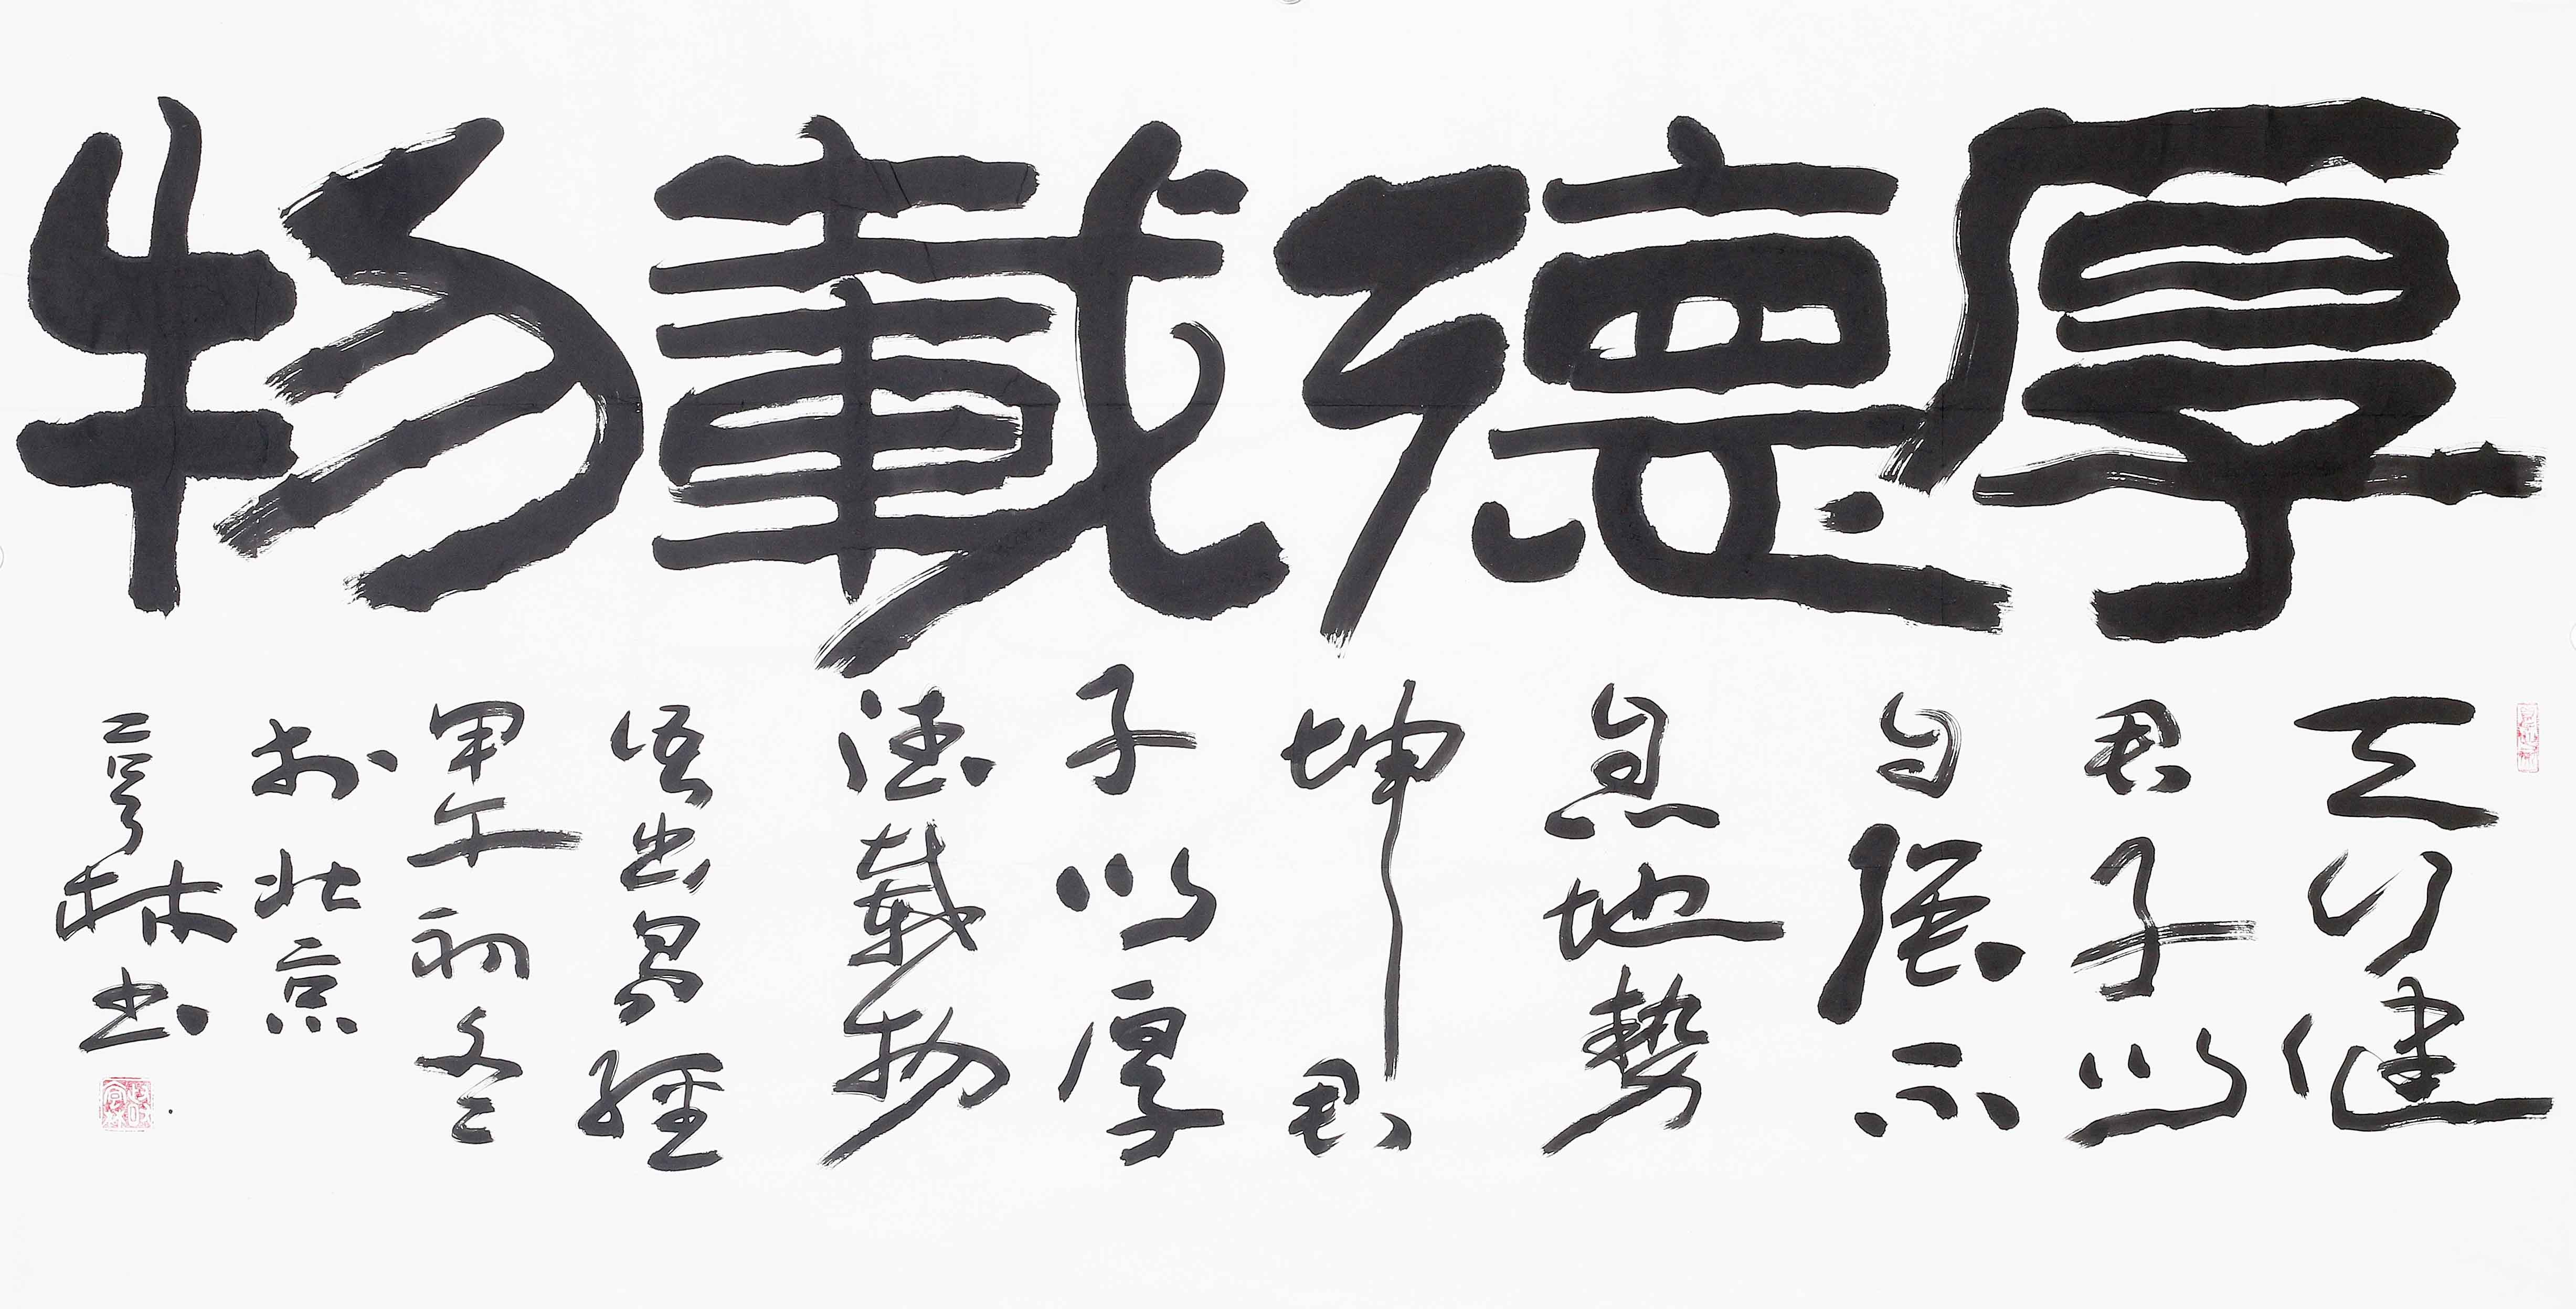 厚德載物
天行健
君子以
自强不
息地勢
坤君
子以厚
德載物
語出易經
甲午初冬
於北京
亨林書